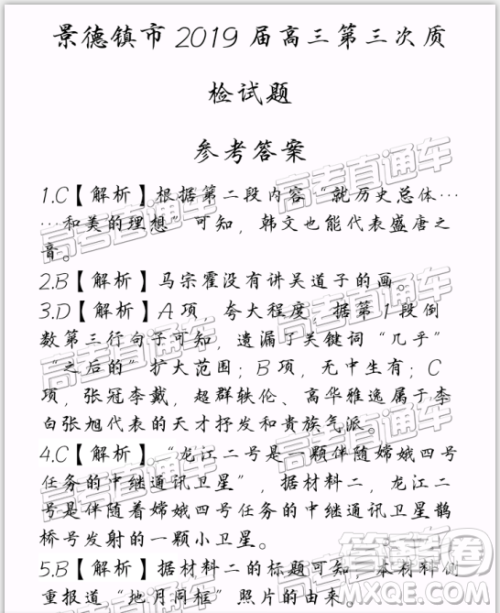 景德镇市2019届高三第三次质
检试题
参考答案
1.C【解析】根据第二段内容“就历史总体…
…和美的理想”可知，韩文也能代表盛唐之
音。
2.B【解析】马宗霍没有讲吴道子的画。
3.D【解析】A项，夸大程度，据第1段倒
数第三行句子可知，遗漏了关键词“几乎”
“之后的”扩大范围；B项，无中生有；C
项，张冠李戴，超群轶伦、高华雅逸属于李
白张旭代表的天才抒发和贵族气派。
4.C【解析】“龙江二号是一颗伴随嫦娥四号
任务的中继通讯卫星”，据材料二，龙江二
号是伴随着嫦娥四号任务的中继通讯卫星鹊
桥号发射的一颗小卫星。
5.B【解析】据材料二的标题可知，本材料侧
重报道“地月同框”照片的由来
高考直通车
高考直通车
高考直通车
高考直通车
高考直通车
答案圈
MXQE.COM